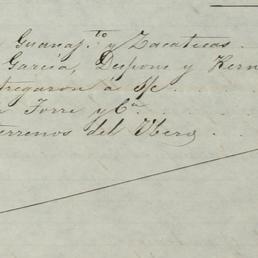 Guanaj.to y Zacatecas
García, Despons y Hern
tregaron á S/c
Torre y Ca
terrenos del Vbero